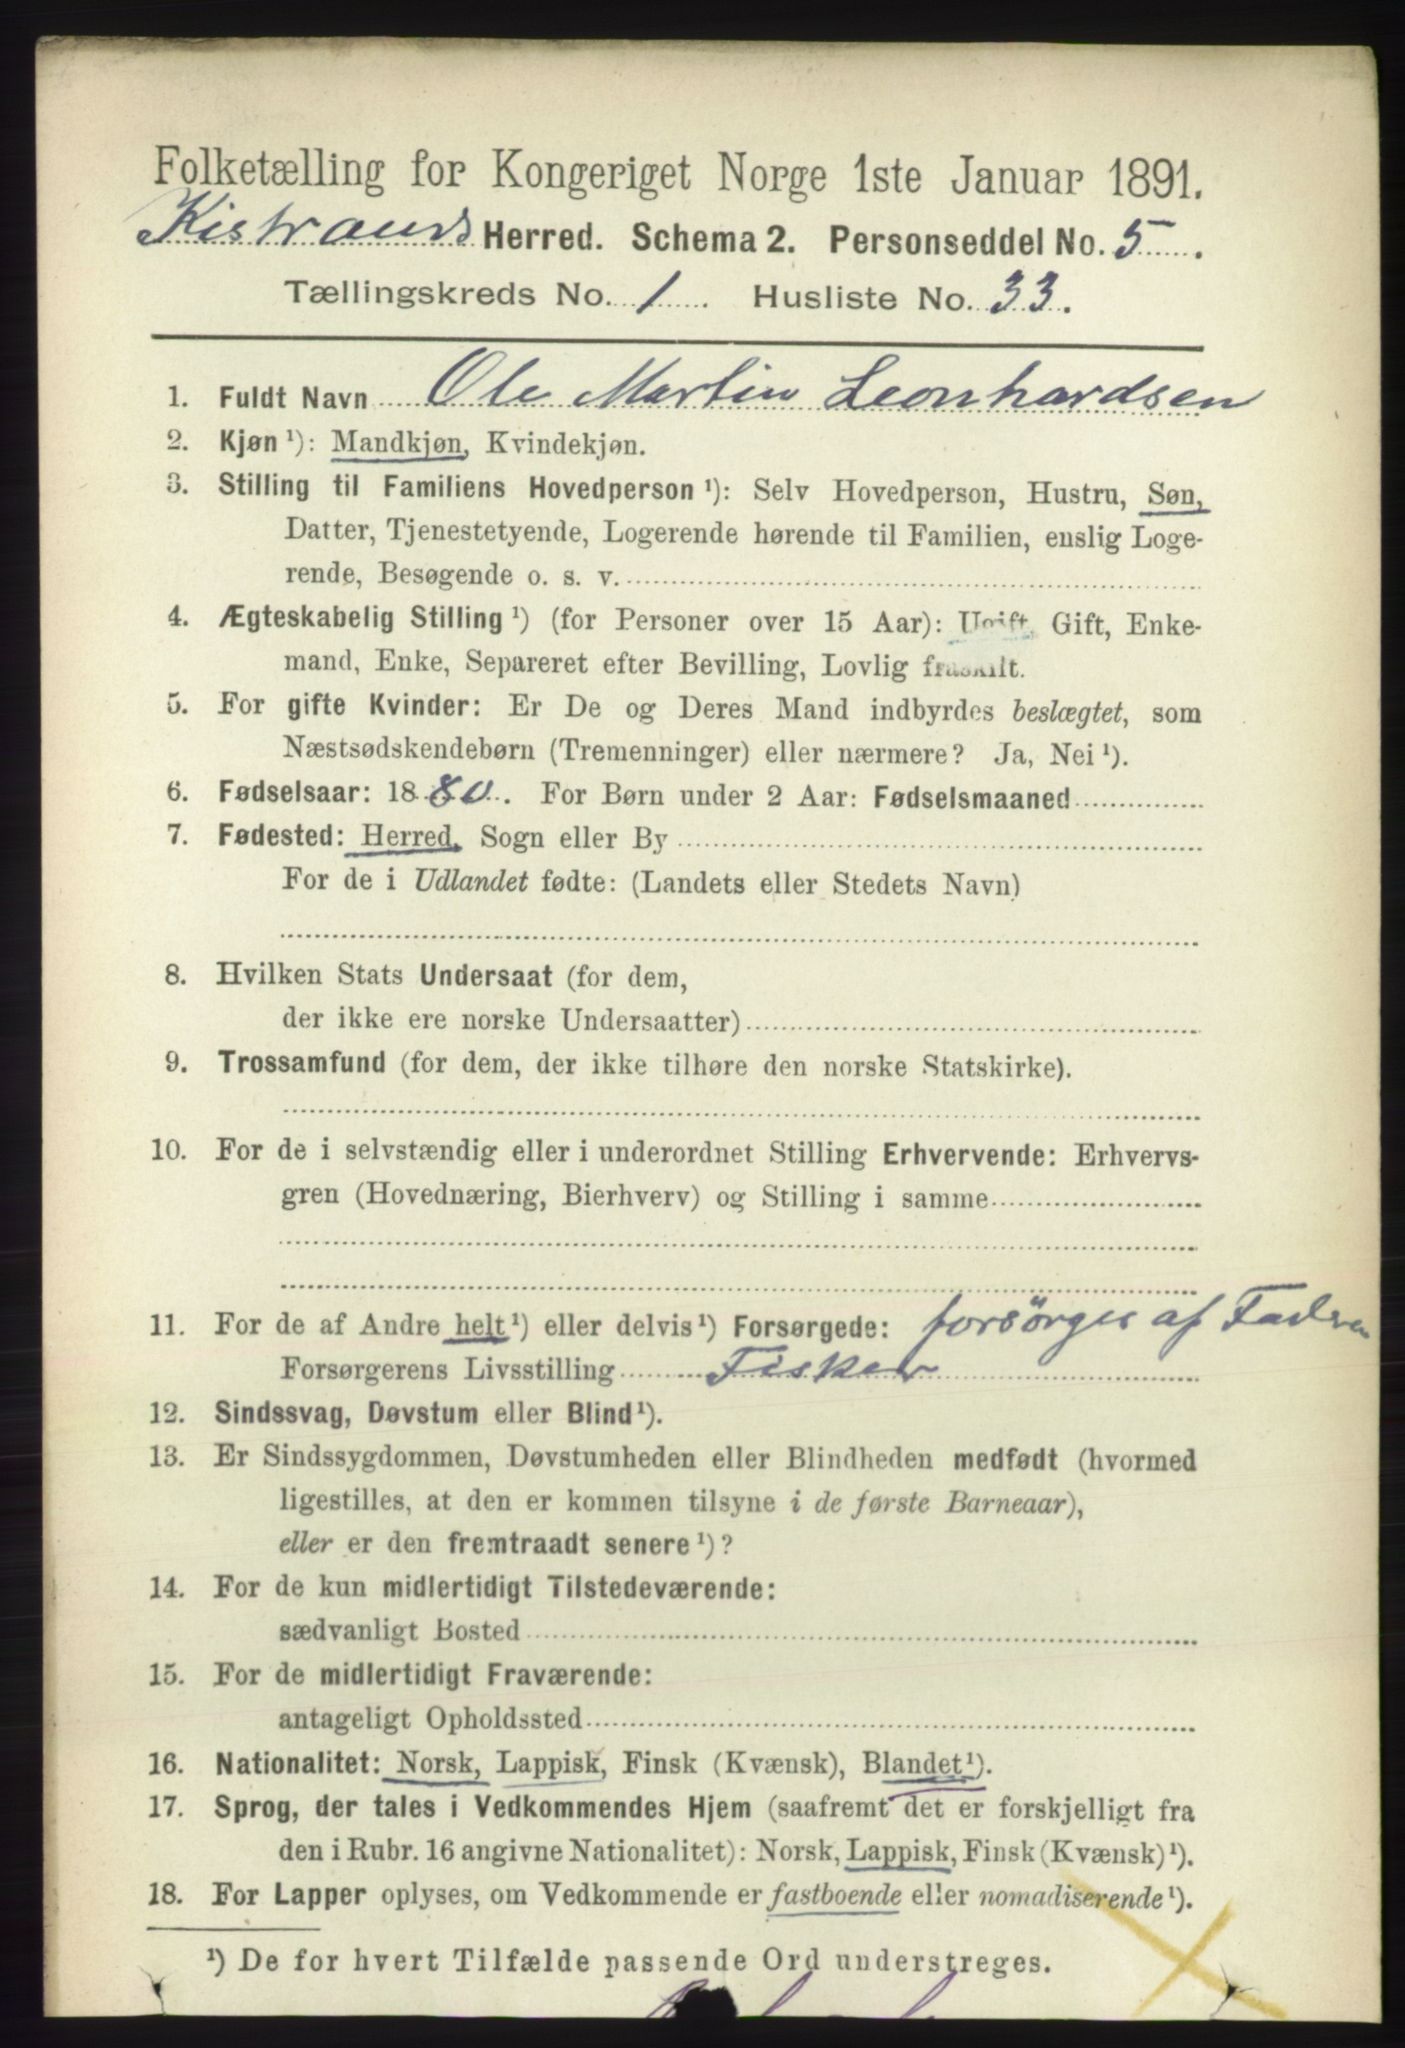 Folketælling for Kongeriget Norge 1ste Januar 1891.
Kistrands Herred. Schema 2. Personseddel No. 5.
Tællingskreds No. 1 Husliste No. 33.
1. Fuldt Navn Ole Martin Leonhardsen
2. Kjøn ¹): Mandkjøn, Kvindekjøn.
3. Stilling til Familiens Hovedperson ¹): Selv Hovedperson, Hustru, Søn,
Datter, Tjenestetyende, Logerende hørende til Familien, enslig Loge-
rende, Besøgende o. s. v.
4. Ægteskabelig Stilling ¹) (for Personer over 15 Aar): Ugift, Gift, Enke-
mand, Enke, Separeret efter Bevilling, Lovlig fraskilt.
5. For gifte Kvinder: Er De og Deres Mand indbyrdes beslægtet, som
Næstsødskendebørn (Tremenninger) eller nærmere? Ja, Nei ¹).
6. Fødselsaar: 1880. For Børn under 2 Aar: Fødselsmaaned
7. Fødested: Herred, Sogn eller By
For de i Udlandet fødte: (Landets eller Stedets Navn)
8. Hvilken Stats Undersaat (for dem,
der ikke ere norske Undersaatter)
9. Trossamfund (for dem, der ikke tilhøre den norske Statskirke).
10. For de i selvstændig eller i underordnet Stilling Erhvervende: Erhvervs-
gren (Hovednæring, Bierhverv) og Stilling i samme
11. For de af Andre helt ¹) eller delvis ¹) Forsørgede: forsörges af Faderen
Forsørgerens Livsstilling Fisker
12. Sindssvag, Døvstum eller Blind ¹).
13. Er Sindssygdommen, Døvstumheden eller Blindheden medfødt (hvormed
ligestilles, at den er kommen tilsyne i de første Barneaar),
eller er den fremtraadt senere ¹)?
14. For de kun midlertidigt Tilstedeværende:
sædvanligt Bosted
15. For de midlertidigt Fraværende:
antageligt Opholdssted
16. Nationalitet: Norsk, Lappisk, Finsk (Kvænsk), Blandet ¹).
17. Sprog, der tales i Vedkommendes Hjem (saafremt det er forskjelligt fra
den i Rubr. 16 angivne Nationalitet): Norsk, Lappisk, Finsk (Kvænsk) ¹).
18. For Lapper oplyses, om Vedkommende er fastboende eller nomadiserende ¹).
¹) De for hvert Tilfælde passende Ord understreges.